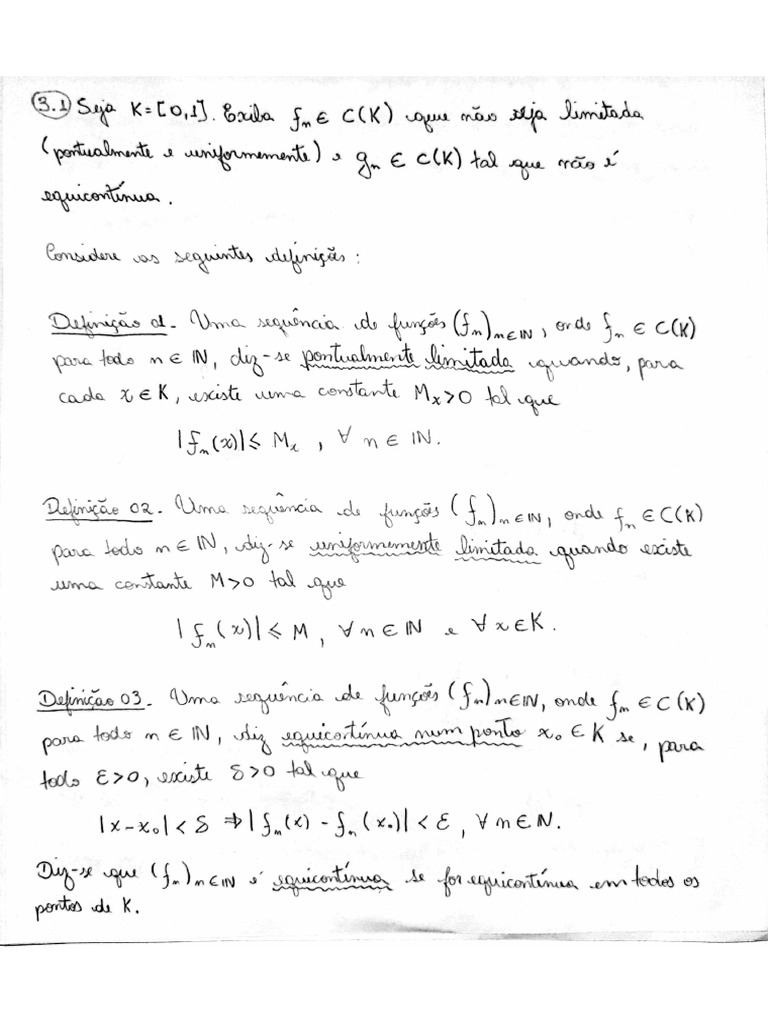 3.1 Seja K=[0,1]. Exiba fₙ ∈ C(K) que não seja limitada
(pontualmente e uniformemente) e gₙ ∈ C(K) tal que não é
equicontínua.
Considere as seguintes definições:
Definição 01. Uma sequência de funções (fₙ)ₙ∈ℕ, onde fₙ ∈ C(K)
para todo n ∈ ℕ, diz-se pontualmente limitada quando, para
cada x ∈ K, existe uma constante Mₓ>0 tal que
|fₙ(x)| ≤ Mₓ, ∀ n ∈ ℕ.
Definição 02. Uma sequência de funções (fₙ)ₙ∈ℕ, onde fₙ ∈ C(K)
para todo n ∈ ℕ, diz-se uniformemente limitada quando existe
uma constante M>0 tal que
|fₙ(x)| ≤ M, ∀ n ∈ ℕ e ∀ x ∈ K.
Definição 03. Uma sequência de funções (fₙ)ₙ∈ℕ, onde fₙ ∈ C(K)
para todo n ∈ ℕ, diz equicontínua num ponto x₀ ∈ K se, para
todo ε>0, existe δ>0 tal que
|x-x₀| < δ ⇒ |fₙ(x) - fₙ(x₀)| < ε, ∀ n ∈ ℕ.
Diz-se que (fₙ)ₙ∈ℕ é equicontínua se for equicontínua em todos os
pontos de K.